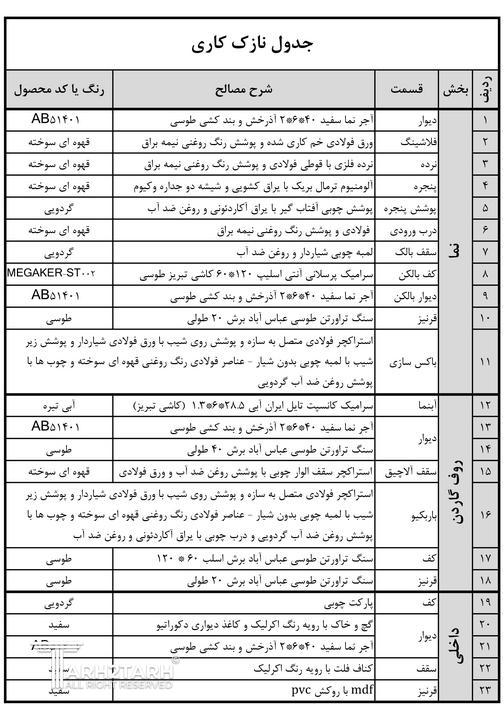 جدول نازک کاری
ردیف بخش قسمت شرح مصالح رنگ یا کد محصول
نما
۱ دیوار آجر نما سفید ۴۰*۶*۲ آذرخش و بند کشی طوسی AB۵۱۴۰۱
۲ فلاشینگ ورق فولادی خم کاری شده و پوشش رنگ روغنی نیمه براق قهوه ای سوخته
۳ نرده نرده فلزی با قوطی فولادی و پوشش رنگ روغنی نیمه براق قهوه ای سوخته
۴ پنجره آلومنیوم ترمال بریک با یراق کشویی و شیشه دو جداره وکیوم قهوه ای سوخته
۵ پوشش پنجره پوشش چوبی آفتاب گیر با یراق آکاردئونی و روغن ضد آب گردویی
۶ درب ورودی فولادی و پوشش رنگ روغنی نیمه براق قهوه ای سوخته
۷ سقف بالک لمبه چوبی شیاردار و روغن ضد آب گردویی
۸ کف بالکن سرامیک پرسلانی آنتی اسلیپ ۱۲۰*۶۰ کاشی تبریز طوسی MEGAKER-ST۰۰۲
۹ دیوار بالکن آجر نما سفید ۴۰*۶*۲ آذرخش و بند کشی طوسی AB۵۱۴۰۱
۱۰ قرنیز سنگ تراورتن طوسی عباس آباد برش ۲۰ طولی طوسی
۱۱ باکس سازی استراکچر فولادی متصل به سازه و پوشش روی شیب با ورق فولادی شیاردار و پوشش زیر
شیب با لمبه چوبی بدون شیار - عناصر فولادی رنگ روغنی قهوه ای سوخته و چوب ها با
پوشش روغن ضد آب گردویی
روف گاردن
۱۲ آبنما سرامیک کانسپت تایل ایران آبی ۲۸.۵*۶*۱.۳ (کاشی تبریز) آبی تیره
۱۳ دیوار آجر نما سفید ۴۰*۶*۲ آذرخش و بند کشی طوسی AB۵۱۴۰۱
۱۴ سنگ تراورتن طوسی عباس آباد برش ۴۰ طولی طوسی
۱۵ سقف آلاچیق استراکچر سقف الوار چوبی با پوشش روغن ضد آب و ورق فولادی قهوه ای سوخته
۱۶ باربکیو استراکچر فولادی متصل به سازه و پوشش روی شیب با ورق فولادی شیاردار و پوشش زیر
شیب با لمبه چوبی بدون شیار - عناصر فولادی رنگ روغنی قهوه ای سوخته و چوب ها با
پوشش روغن ضد آب گردویی و درب چوبی با یراق آکاردئونی و روغن ضد آب
۱۷ کف سنگ تراورتن طوسی عباس آباد برش اسلب ۶۰ * ۱۲۰ طوسی
۱۸ قرنیز سنگ تراورتن طوسی عباس آباد برش ۲۰ طولی طوسی
داخلی
۱۹ کف پارکت چوبی گردویی
۲۰ دیوار گچ و خاک با رویه رنگ اکرلیک و کاغذ دیواری دکوراتیو سفید
۲۱ آجر نما سفید ۴۰*۶*۲ آذرخش و بند کشی طوسی
۲۲ سقف کناف فلت با رویه رنگ اکرلیک
۲۳ قرنیز mdf با روکش pvc سفید
TARH2TARH
ALL RIGHT RESERVED